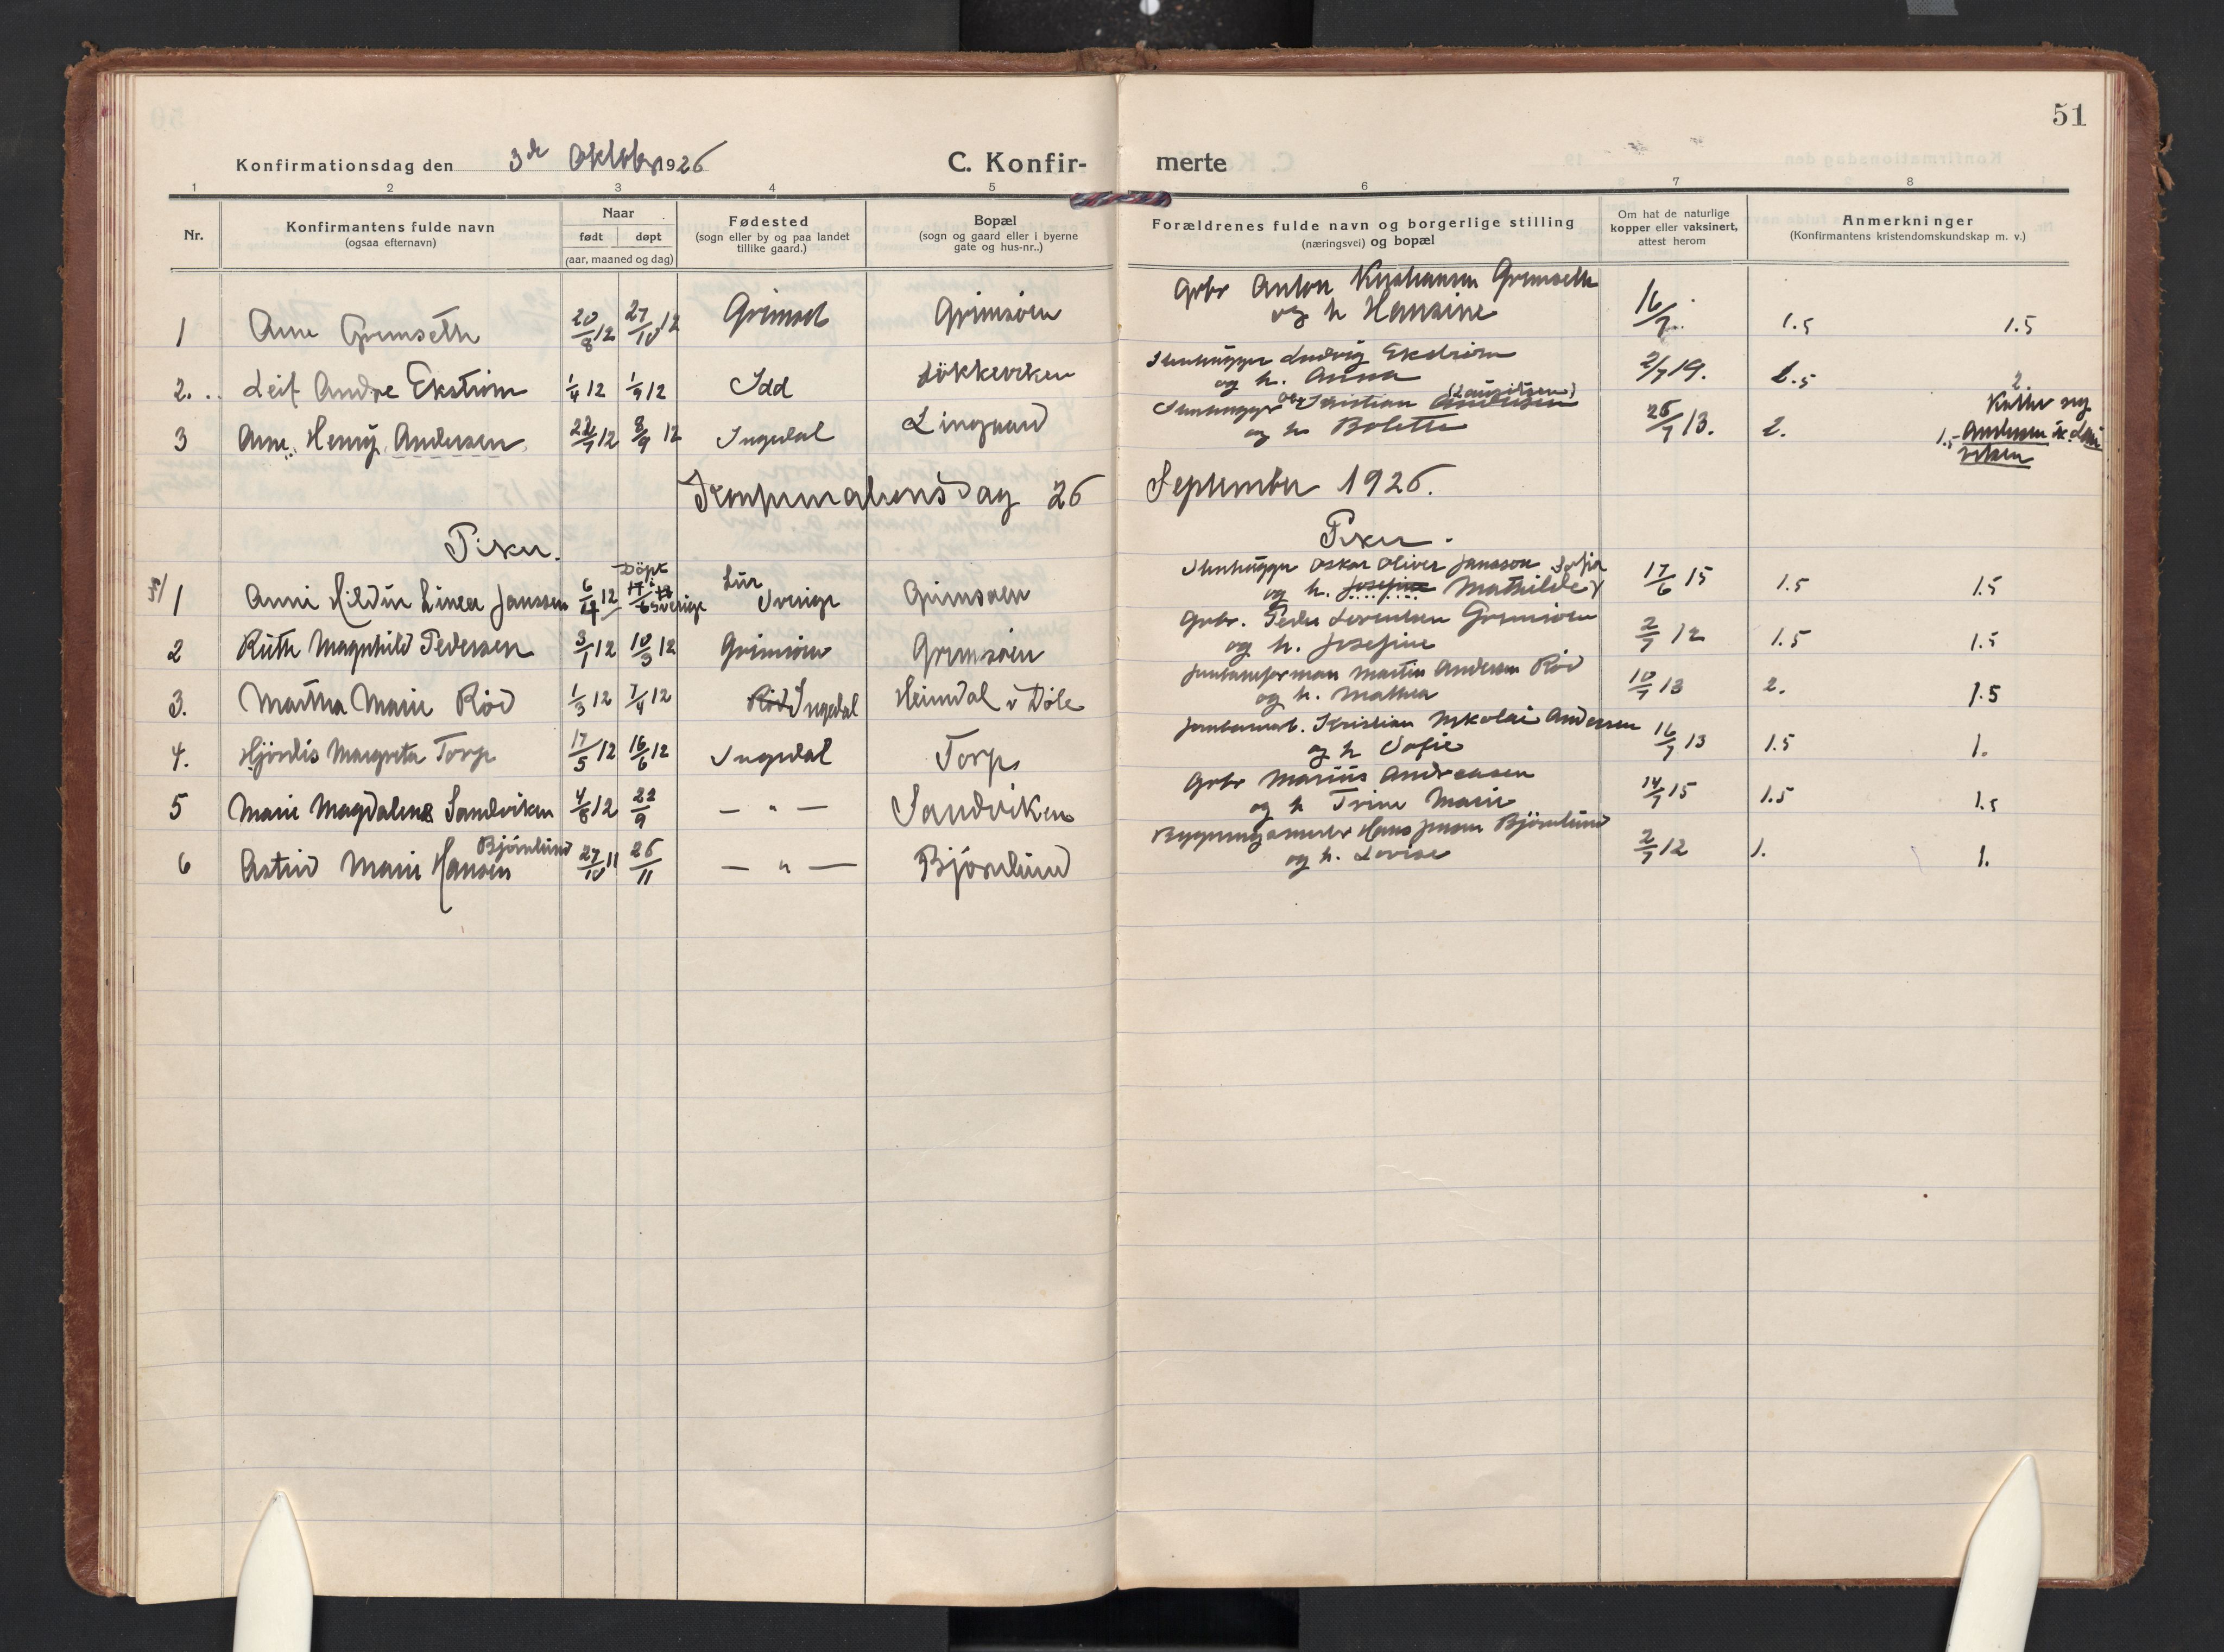 51
Konfirmationsdag den 3de Oktober 1926 C. Konfir- merte
1 2 3 4 5 6 7 8
Nr. Konfirmantens fulde navn (ogsaa efternavn) Naar født døpt (aar, maaned og dag) Fødested (sogn eller by og paa landet tillike gaard.) Bopæl (sogn og gaard eller i byerne gate og hus-nr..) Forældrenes fulde navn og borgerlige stilling (næringsvei) og bopæl Om hat de naturlige kopper eller vaksinert, attest herom Anmerkninger (Konfirmantens kristendomskundskap m. v.)
Gbr Anton Kristiansen Grimseth
1 Arne Grimseth 20/8 12 27/10 12 Grimset Grimsøen og h Hansine 16/7 1.5 1.5
Stenhugger Ludvig Ekström
2. Leif Andre Ekström 1/4 12 1/9 12 Idd Løkkeviken og h. Anna 2/7 19. 2.5 2.
Stenhugger Kristian Andersen (Lauritzen)
3 Arne Henry Andersen 22/7 12 8/9 12 Ingedal Lingaard og h Bolette 25/7 13. 2. 1.5 Kaller seg Andersen
Konfirmationsdag 26 September 1926.
Piker. Piker.
Stenhugger Oskar Oliver Jansson Sofia
1 Anni Hildur Linea Janssen 6/4 12 Döpt i Sverige 17/6 12 Lur Sverige Grimsøen og h. Josefine Mathilde 17/6 15 1.5 1.5
Gbr. Peder Lorentsen Grimsøen
2 Ruth Magnhild Pedersen 3/1 12 10/3 12 Grimsøen Grimsøen og h. Josefine 2/7 12 1.5 1.5
Jernbaneforman Martin Andersen Rød
3. Martha Marie Rød 1/3 12 7/4 12 Rød Ingedal Heimdal v Döle og h. Mathea 10/7 13 2. 1.5
Jernbanearb. Kristian Nikolai Andersen
4. Hjördis Margreta Torp 17/5 12 16/6 12 Ingedal Torp og h Sofie 16/7 13 1.5 1.
Gbr Marius Andreasen
5 Marie Magdalena Sandviken 4/8 12 22/9 — " — Sandviken og h Trine Marie 14/7 15 1.5 1.5
Bygningsmester Hans Jensen Björnlund
6 Astrid Marie Hansen Björnlund 27/10 11 26/11 — " — Björnlund og h. Lovise 2/7 12 1. 1.